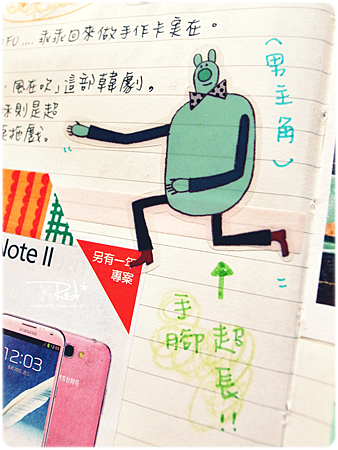 FU.... 乖乖回來做手作卡実在。
風在吹」這部韓劇。
則是超
拖戲。
(男主角)
Note II
另有一年
專案
12:03
SAMSUNG
手腳超長!!